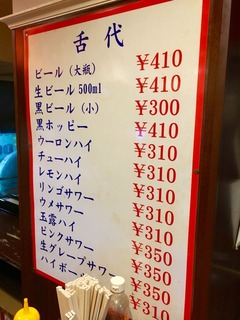 舌代
ビール(大瓶) ¥410
生ビール500ml ¥410
黒ビール(小) ¥300
黒ホッピー ¥410
ウーロンハイ ¥310
チューハイ ¥310
レモンハイ ¥310
リンゴサワー ¥310
ウメサワー ¥310
玉露ハイ ¥350
ピンクサワー ¥310
生グレープサワー ¥350
ハイボール ¥310